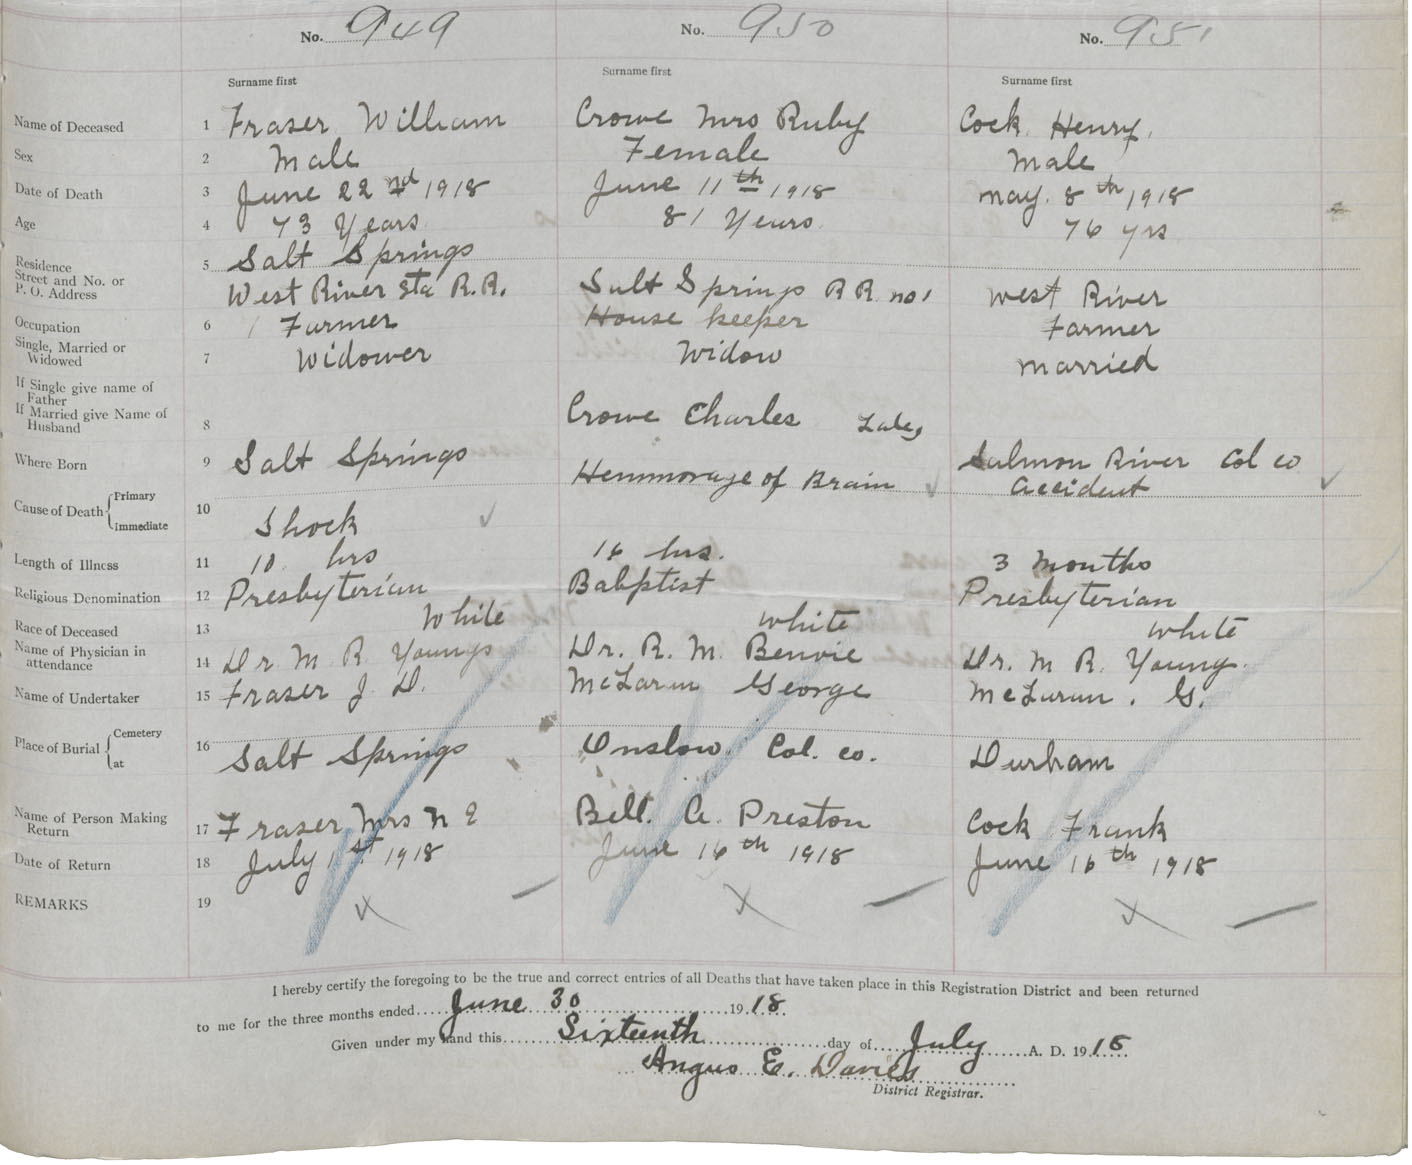 No. 949 No. 950 No. 951
Surname first Surname first Surname first
Name of Deceased 1 Fraser William Crowe Mrs Ruby Cock Henry.
Sex 2 Male Female Male
Date of Death 3 June 22nd 1918 June 11th 1918 May. 8th 1918
Age 4 73 Years 81 Years 76 yrs
Residence 5 Salt Springs
Street and No. or
P. O. Address West River Sta R.R. Salt Springs R R no 1 West River
Occupation 6 Farmer House keeper Farmer
Single, Married or
Widowed 7 Widower Widow Married
If Single give name of
Father
If Married give Name of
Husband 8 Crowe Charles
Where Born 9 Salt Springs Salmon River Col co
Cause of Death Primary Hemmorage of Brain Accident
10
Immediate Shock
Length of Illness 11 10 hrs 16 hrs. 3 Months
Religious Denomination 12 Presbyterian Babptist Presbyterian
Race of Deceased 13 White White White
Name of Physician in
attendance 14 Dr M R Youngs Dr. R. M. Benvie Dr. M R. Young.
Name of Undertaker 15 Fraser J. D. McLaren George McLaren. G.
Place of Burial Cemetery
16
at Salt Springs Onslow. Col. co. Durham
Name of Person Making
Return 17 Fraser Mrs N E Bell. A. Preston Cock Frank
Date of Return 18 July 1st 1918 June 16th 1918 June 16th 1918
REMARKS 19
I hereby certify the foregoing to be the true and correct entries of all Deaths that have taken place in this Registration District and been returned
to me for the three months ended June 30 1918.
Given under my hand this Sixteenth day of July A. D. 1918.
Angus E. Davies
District Registrar.